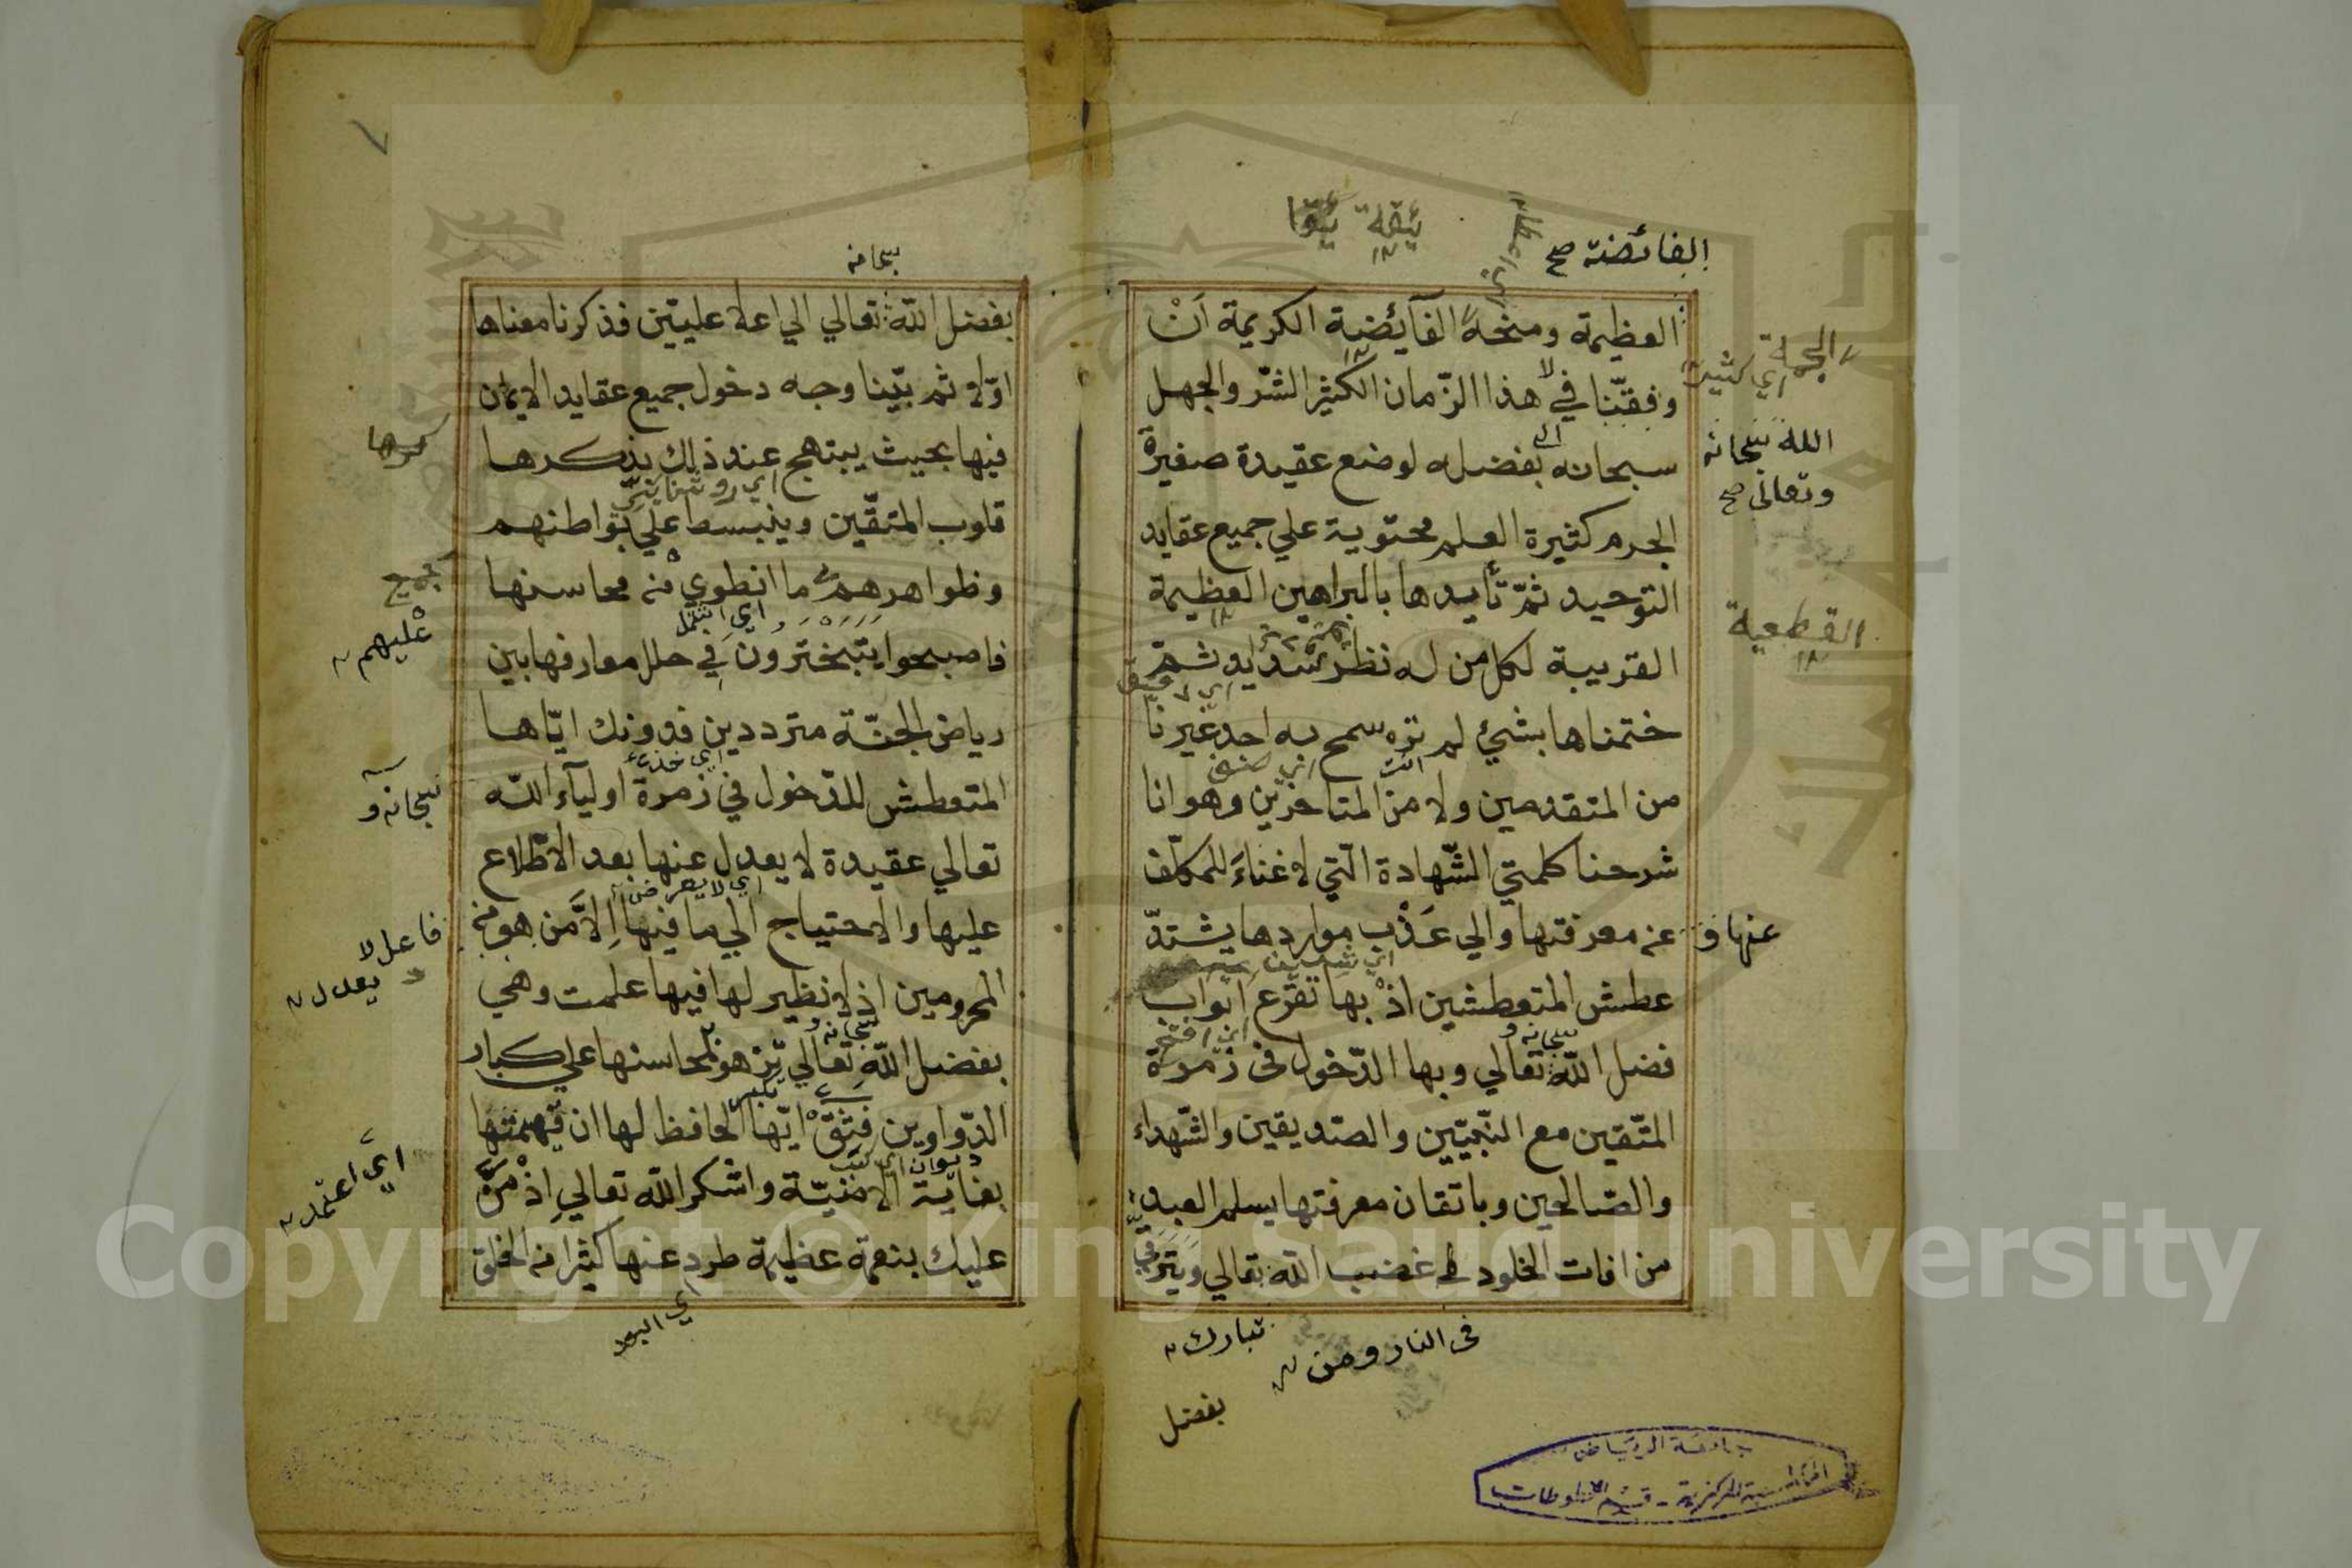 الفائضة صح
العظيمة ومنحه الفآئضة الكريمة اَنْ
وفقّنا في هذا الزّمان الكثير الشّر والجهل
سبحانه بفضله لوضع عقيدة صغيرة
الجرم كثيرة العلم محتوية علي جميع عقايد
التّوحيد ثمّ تأييدها بالبراهين العظيمة
القريبة لكل من له نظر سديد ثمّ
ختمناها بشيئ لم نره سمح به احد غيرنا
من المتقدمين ولا من المتاخرين وهو انا
شرحنا كلمتي الشّهادة الّتي لا غناءَ للمكلّف
عنه معرفتها والي عَذْب مواردها يشتدّ
عطش المتعطشين اذْ بها تقرَع ابواب
فضل اللّه تعالي وبها الدّخول فى زمرة
المتّقين مع النّبيّين والصّديقين والشّهداء
والصّالحين وباتقان معرفتها يسلم العبد
من افات الخلود في غضب اللّه تعالي ويترقي
الجملة
اي كثير
اللّه سبحانه
وتعالى صح
القطعية
عنها و
فى النار ومن
تبارك
بفضل
جامعة الرياض
المكتبة المركزية - قسم المخطوطات
٧
سبحانه
بفضل اللّه تعالي الي اعلا عليّين فذكرنا معناها
اوّلا ثم بيّنا وجه دخول جميع عقايد الايمان
فيها بحيث يبتهج عند ذلك بذكرها
قلوب المتقّين وينبسط علي بواطنهم
وظواهرهم ما انطوي منه محاسنها
فاصبحوا يَتَبَخْتَرُونَ فِي حلل معارفها بين
رياض الجنّة مترددين فدونك ايّاها
المتعطش للدّخول في زمرة اوليآء اللّه
تعالي عقيدة لا يعدل عنها بعد الاطّلاع
عليها والاحتياج الي ما فيها اِلاَّ مَن هو منه
المحرومين اذ لا نظير لها فيها علمت وهي
بفضل اللّه تعالي تزهو بمحاسنها علي كبار
الدّواوين فثق ايّها الحافظ لها ان فهمتها
بغاية الامنيّة واشكر اللّه تعالي اِذْ مَنّ
عليك بنعمة عظيمة طرد عنها كثيرا منه الخلق
جميع
عليهم
سبحانه و
فاعل لا
يعدل
اي اعتمد